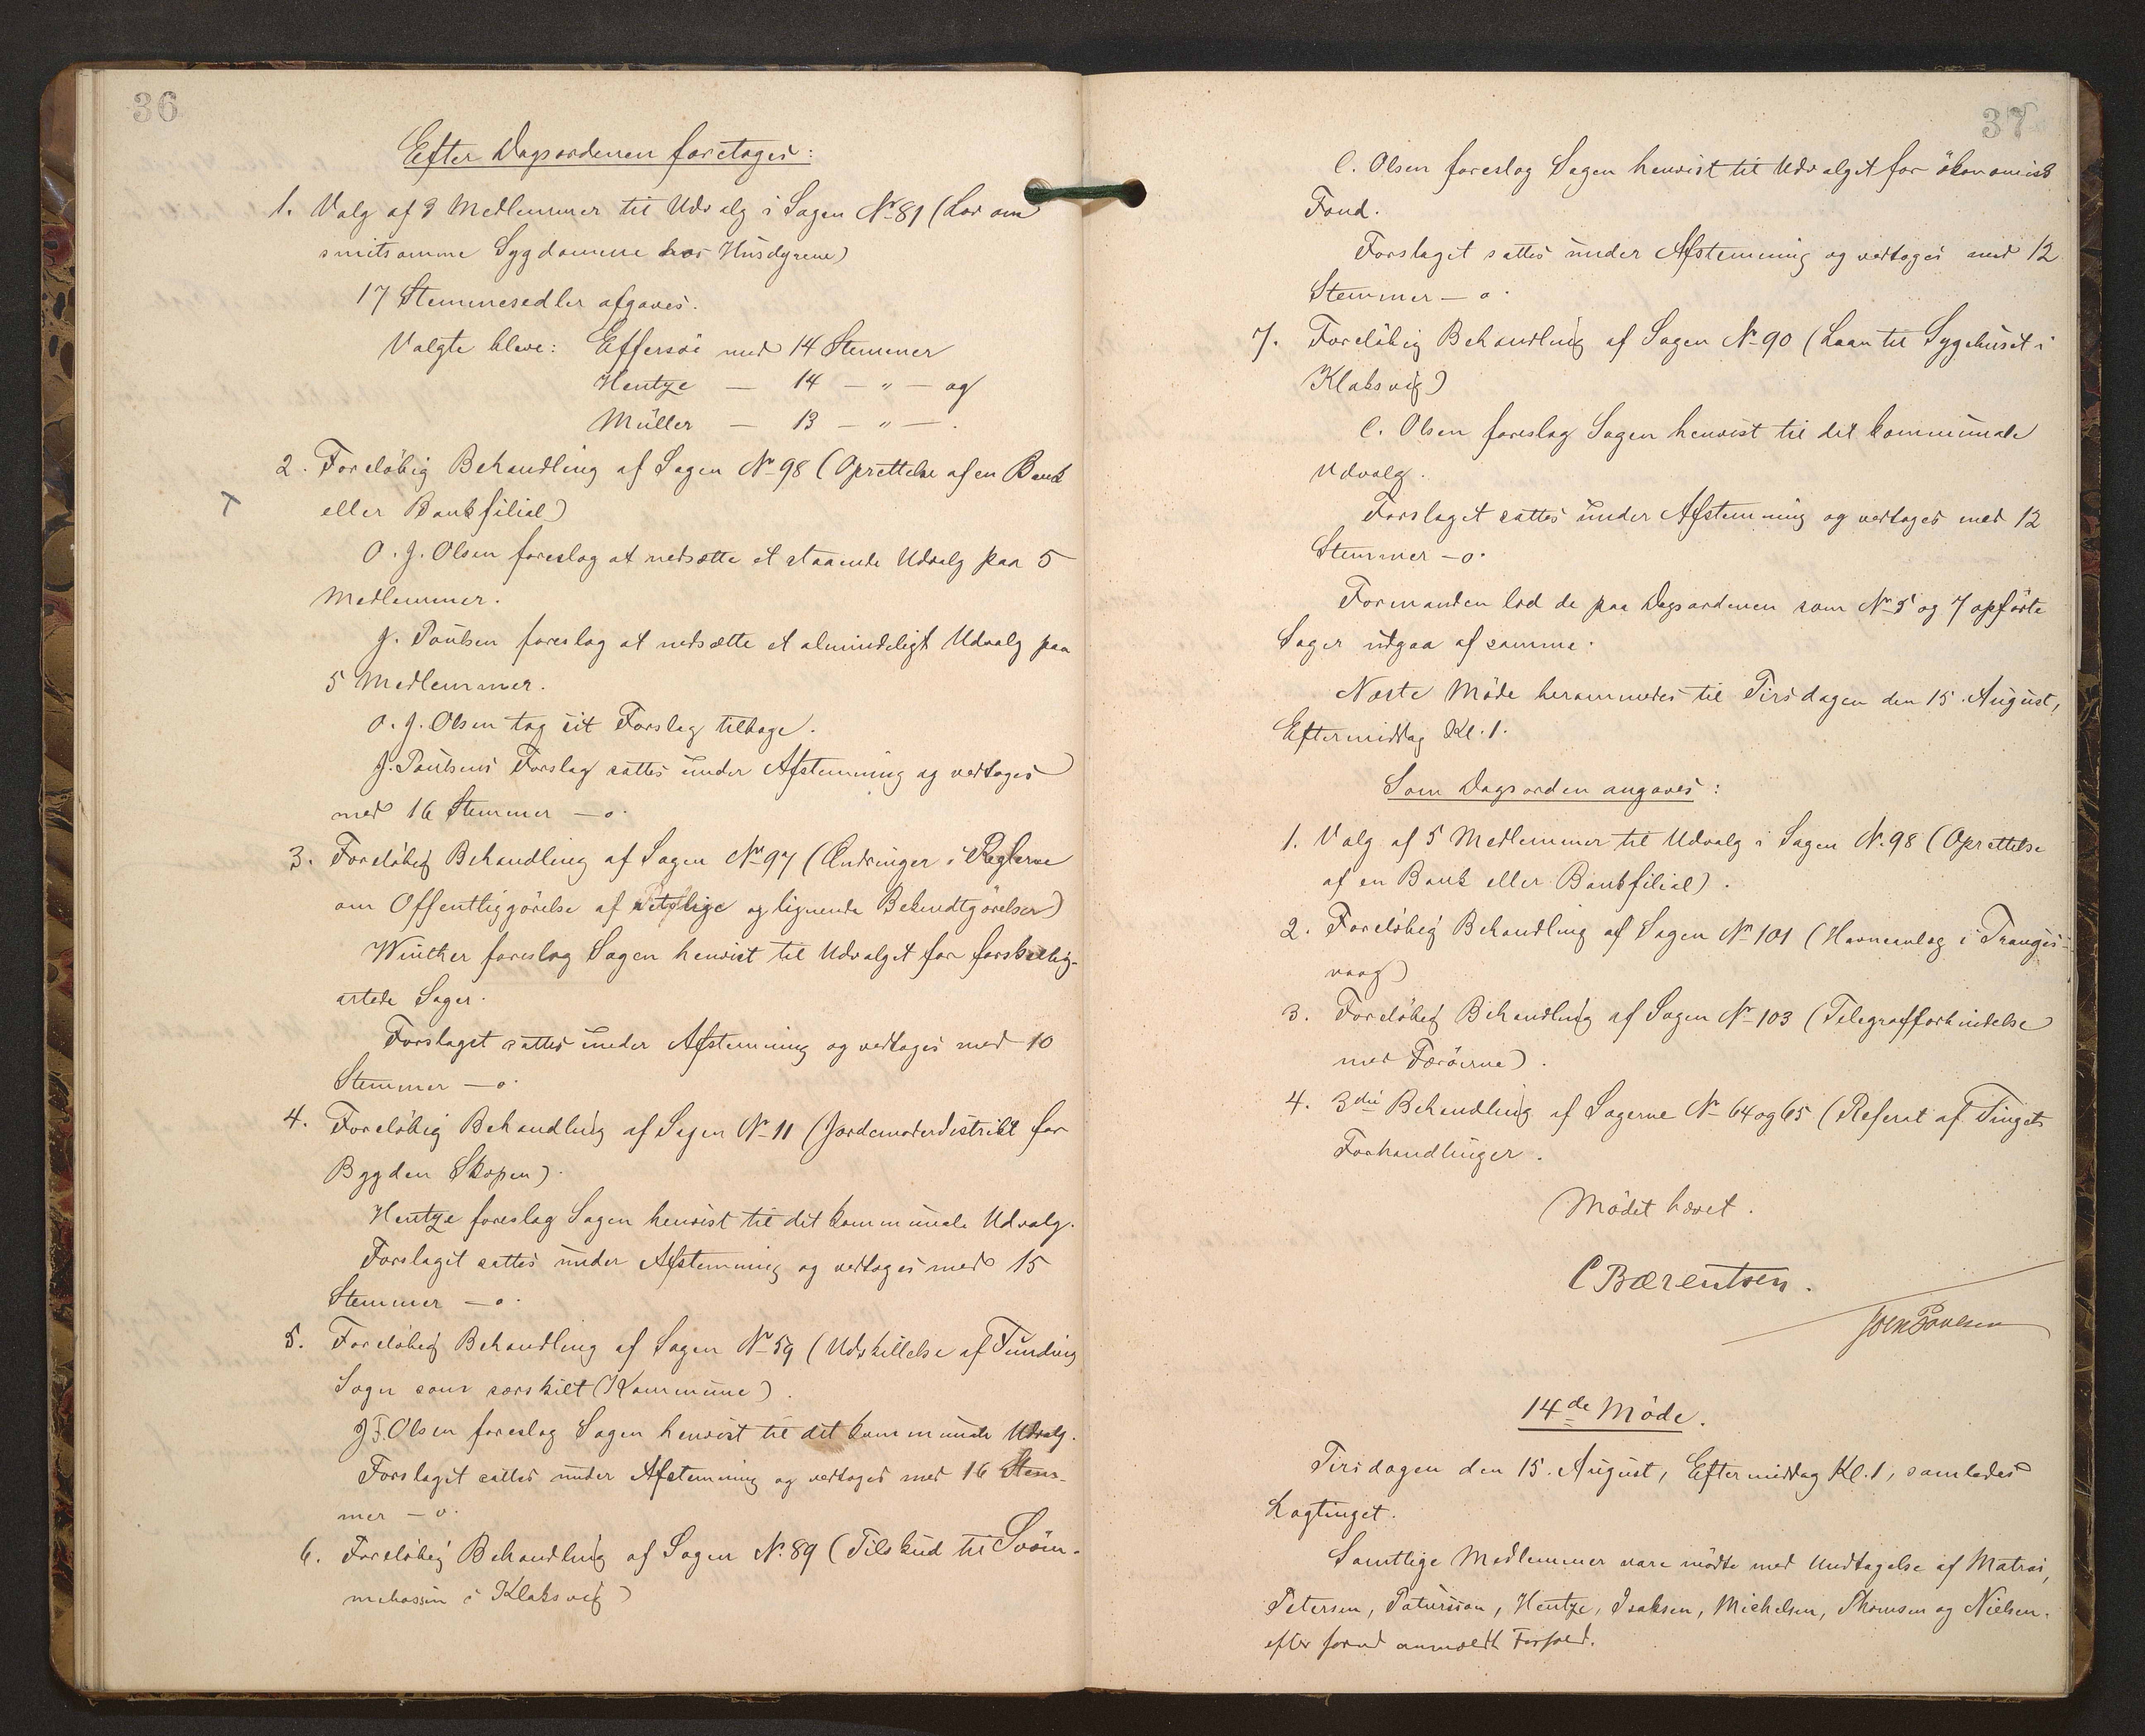 36
Efter Dagsordenen foretages:
1. Valg af 3 Medlemmer til Udvalg i Sagen Nr 81 (Lov om
smitsomme Sygdomme hos Husdyrene)
17 Stemmesedler afgaves.
Valgte bleve: Effersöe med 14 Stemmer
Hentze — 14 — " — og
Müller — 13 — " — .
2. Foreløbig Behandling af Sagen Nr 98 (Oprettelse af en Bank
eller Bankfilial)
O. J. Olsen foreslog at nedsætte et staaende Udvalg paa 5
Medlemmer.
J. Poulsen foreslog at nedsætte et almindeligt Udvalg paa
5 Medlemmer.
O. J. Olsen tog sit Forslag tilbage.
J. Poulsens Forslag sattes under Afstemning og vedtoges
med 16 Stemmer — o.
3. Foreløbig Behandling af Sagen Nr 97 (Ændringer i Reglerne
om Offentliggörelse af retslige og lignende Bekendtgörelser)
Winther foreslog Sagen henvist til Udvalget for forskellig-
artede Sager.
Forslaget sattes under Afstemning og vedtoges med 10
Stemmer — o.
4. Foreløbig Behandling af Sagen Nr 11 (Jordemoderdistrikt for
Bygden Skopen).
Hentze foreslog Sagen henvist til det kommunale Udvalg.
Forslaget sattes under Afstemning og vedtoges med 15
Stemmer — o.
5. Foreløbig Behandling af Sagen Nr 59 (Udskillelse af Funding
Sogn som særskilt Kommune).
J. F. Olsen foreslog Sagen henvist til det kommunale Udvalg.
Forslaget sattes under Afstemning og vedtoges med 16 Stem-
mer — o.
6. Foreløbig Behandling af Sagen Nr. 89 (Tilskud til Svöm-
mebassin i Klaksvig)
37
C. Olsen foreslog Sagen henvist til Udvalget for økonomisk
Fond.
Forslaget sattes under Afstemning og vedtoges med 12
Stemmer — o.
7. Foreløbig Behandling af Sagen Nr 90 (Laan til Sygehuset i
Klaksvig)
C. Olsen foreslog Sagen henvist til det kommunale
Udvalg.
Forslaget sattes under Afstemning og vedtoges med 12
Stemmer — o.
Formanden lod de paa Dagsordenen som Nr 5 og 7 opførte
Sager udgaa af samme.
Næste Möde berammedes til Tirsdagen den 15. August,
Eftermiddag Kl. 1.
Som Dagsorden angaves:
1. Valg af 5 Medlemmer til Udvalg i Sagen Nr. 98 (Oprettelse
af en Bank eller Bankfilial).
2. Foreløbig Behandling af Sagen Nr 101 (Havneanlæg i Trangis-
vaag)
3. Foreløbig Behandling af Sagen Nr 103 (Telegrafforbindelse
med Færöerne).
4. 3die Behandling af Sagerne Nr 64 og 65 (Referat af Tingets
Forhandlinger.
Mödet hævet.
C Bærentsen.
Joen Poulsen
14de Möde.
Tirsdagen den 15. August, Eftermiddag Kl. 1, samledes
Lagtinget.
Samtlige Medlemmer vare mödte med Undtagelse af Matras,
Petersen, Patursson, Hentze, Isaksen, Michelsen, Thomsen og Nielsen.
efter forud anmeldt Forfald.